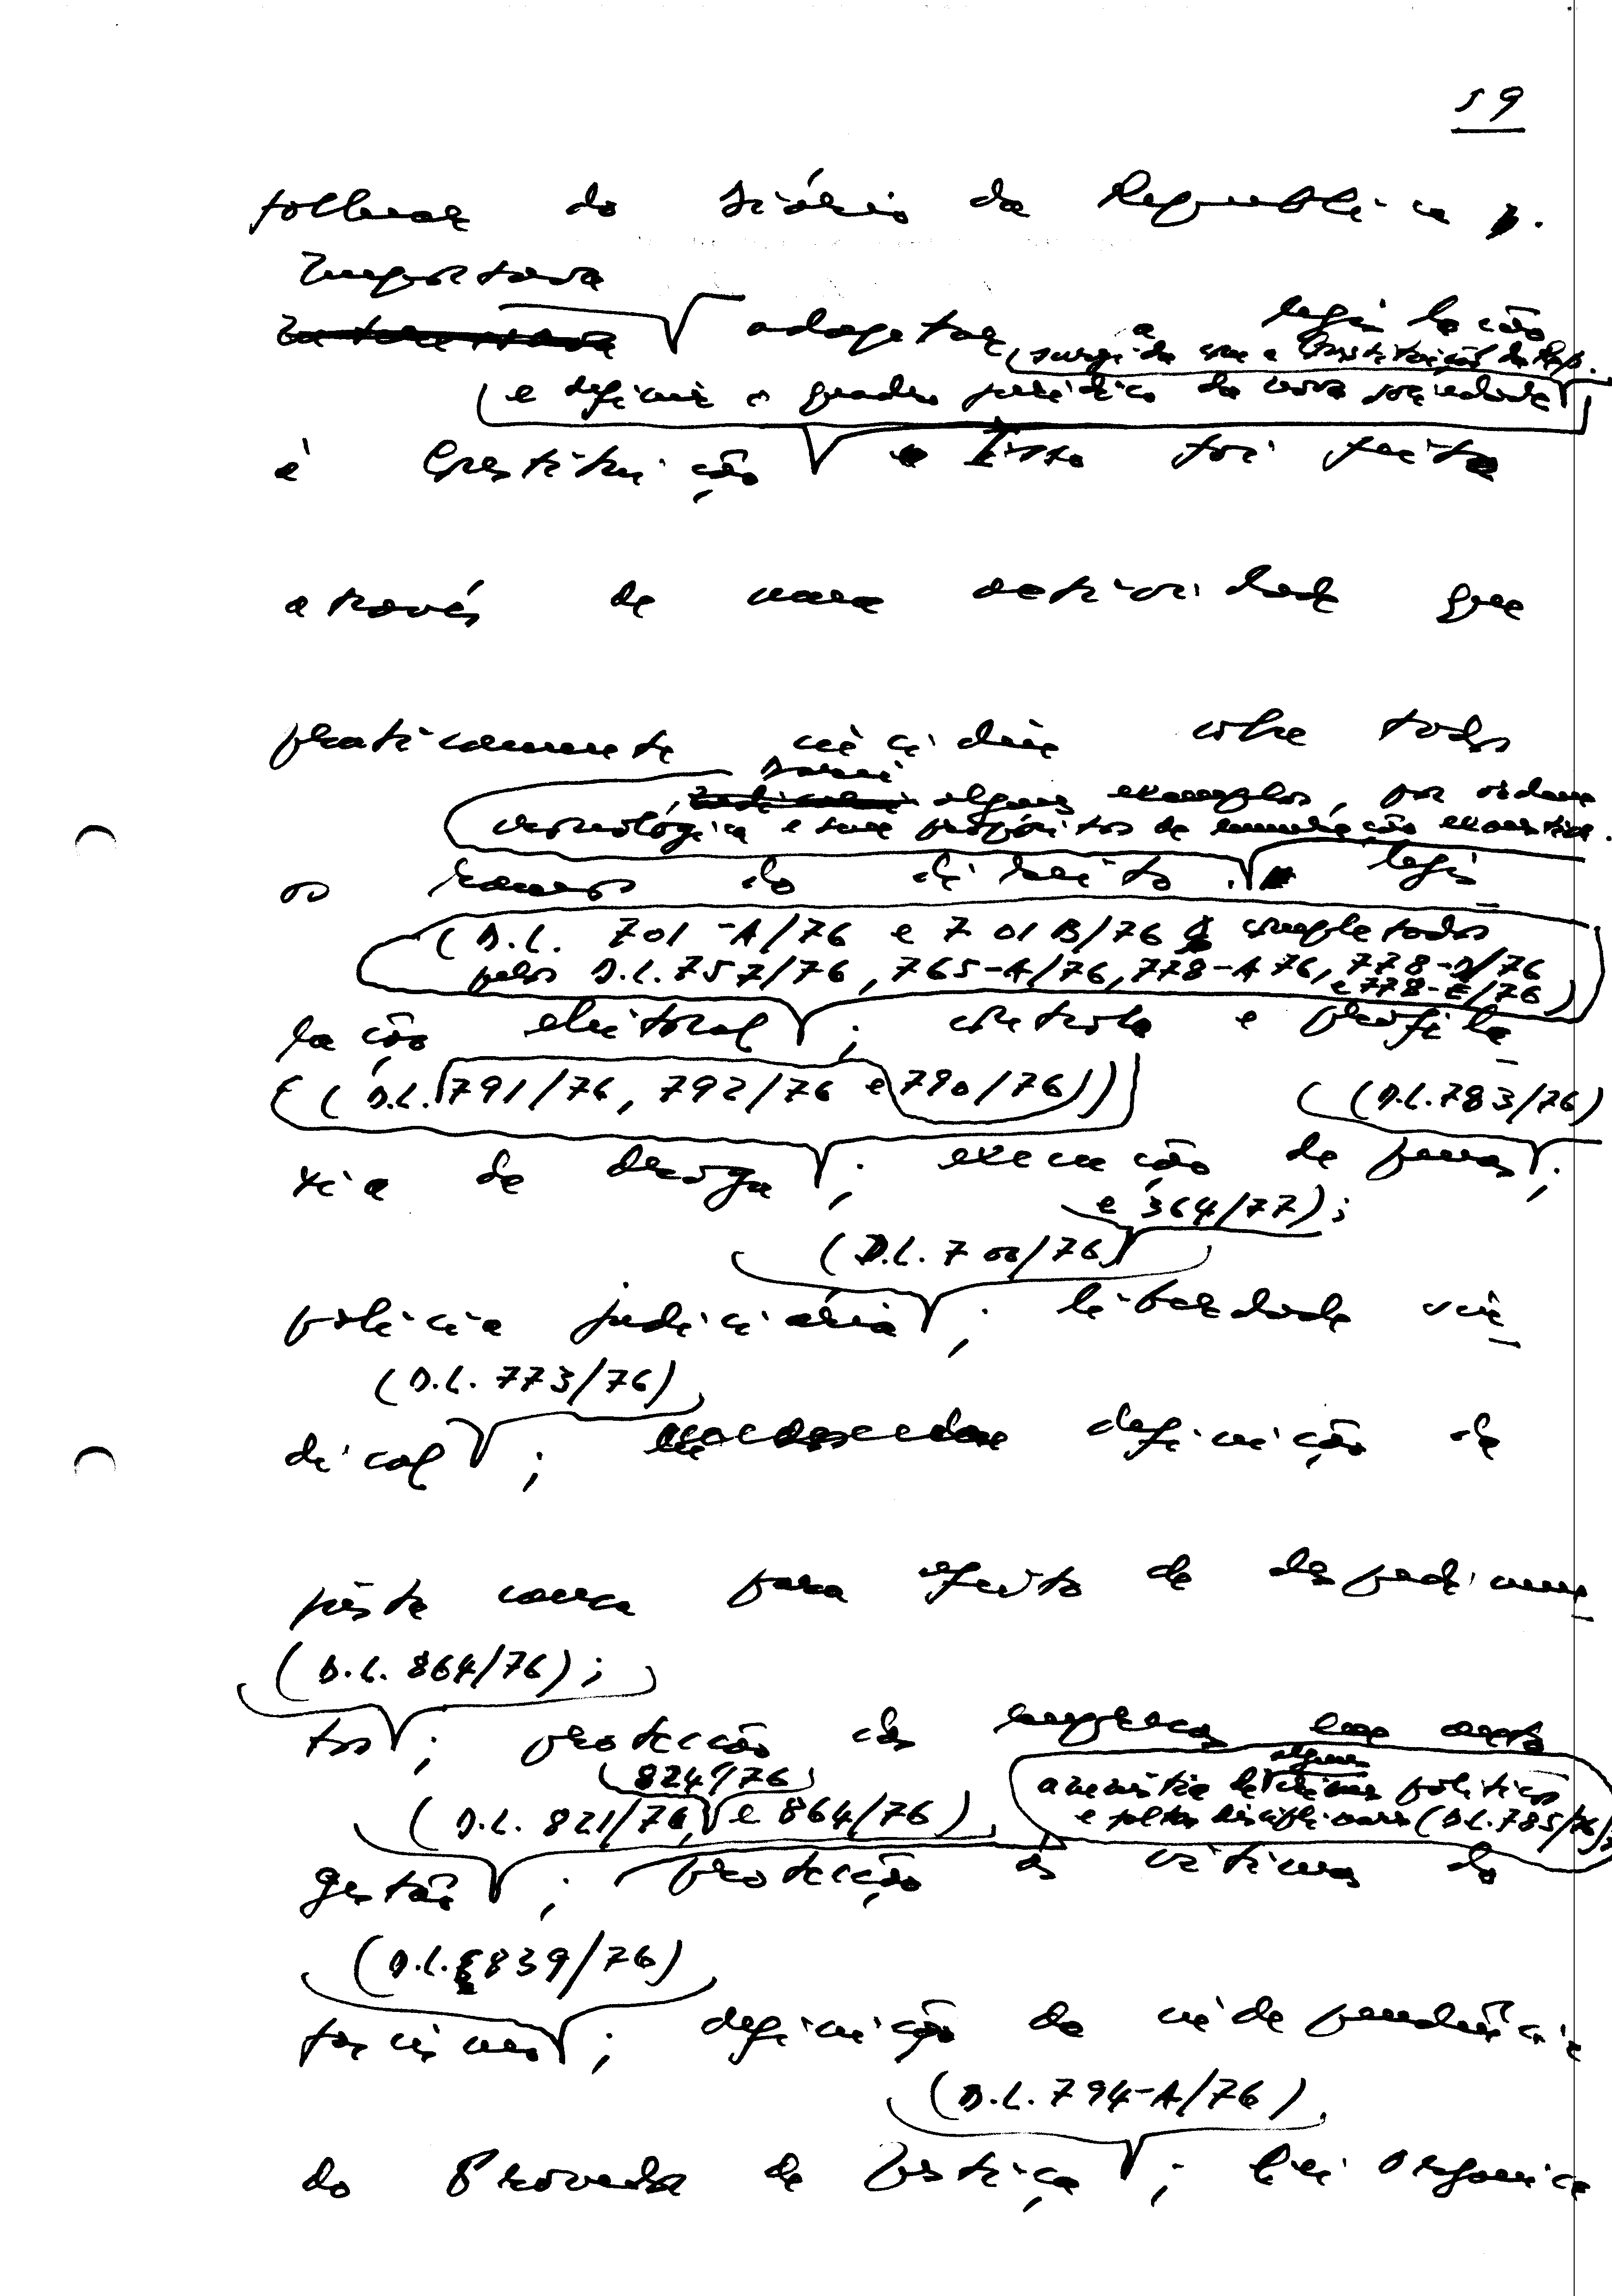 59
folhear do Diário da República.
Importava
adaptar a legislação
(surgida com a Constituição da Rep.
e definir o quadro jurídico da nova sociedade
à Constituição Isso foi feito
através de uma actividade que
praticamente incidiu sobre todos
Darei
alguns exemplos, por ordem
cronológica e sem propósitos de enumeração exaustiva.
os ramos do direito. legis
(D.L. 701-A/76 e 701 B/76 completados
pelos D.L. 757/76, 765-A/76, 778-A 76, 778-D/76
e 778-E/76)
lação eleitoral ; controle e profila
(D.L. 791/76, 792/76 e 790/76)) (D.L. 783/76)
xia da droga ; execução de penas ;
e 364/77);
(D.L. 700/76)
polícia judiciária ; liberdade sin
(D.L. 773/76)
dical ; definição de
justa causa para efeito de despedimen
(D.L. 864/76);
tos ; protecção das empresas em auto
824/76 alguns
amnistia de crimes políticos
(D.L. 821/76, e 864/76) e faltas disciplinares (D.L. 785/76)
gestão ; protecção às vítimas do
(D.L. 839/76)
fascismo ; definição da independência
(D.L. 794-A/76)
do Provedor de Justiça ; Lei Orgânica